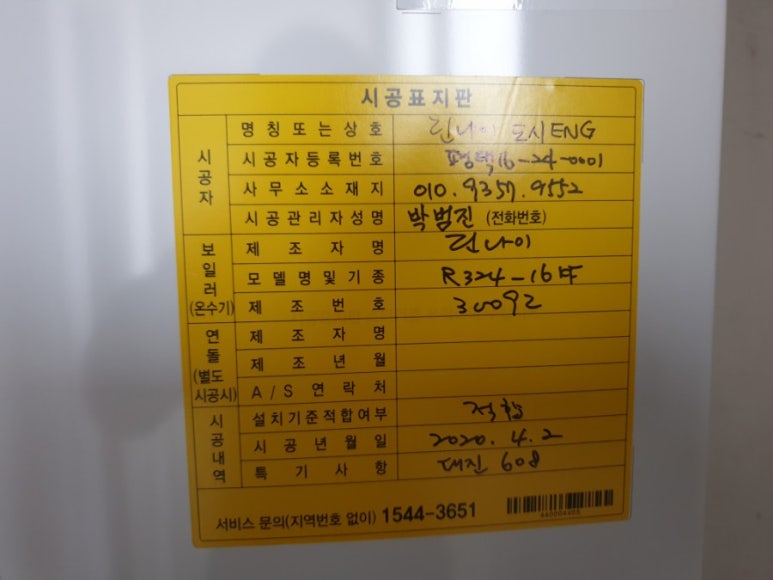 시공표지판
시공자
명칭또는상호 린나이 도시ENG
시공자등록번호 평택16-24-0001
사무소소재지 010.9357.9552
시공관리자성명 박범진 (전화번호)
보일러(온수기)
제조자명 린나이
모델명및기종 R324-16
제조번호 30092
연돌(별도시공시)
제조자명
제조년월
A/S연락처
시공내역
설치기준적합여부 적합
시공년월일 2020.4.2
특기사항 대진 608
서비스 문의(지역번호 없이) 1544-3651